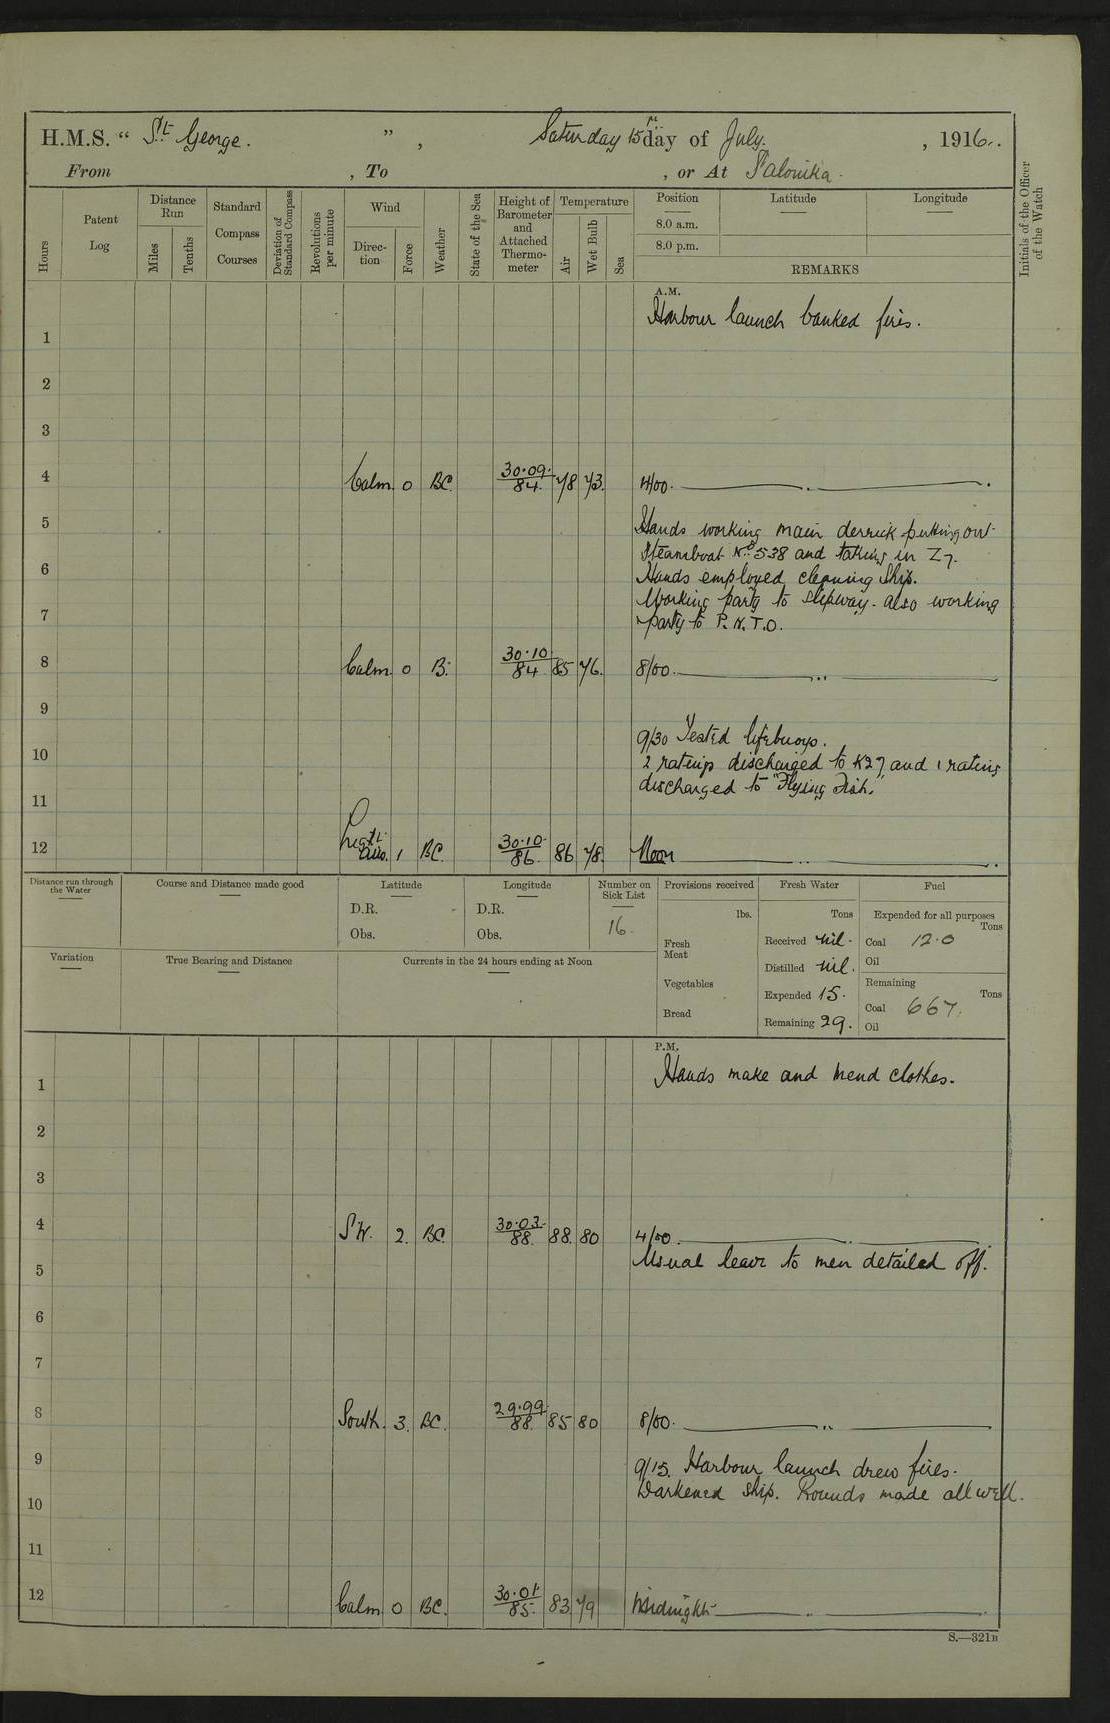 H.M.S. “ St George. ”, Saturday 15th day of July. , 1916.
From , To , or At Salonika.
Hours
Patent Log
Distance Run
Miles
Tenths
Standard Compass Courses
Deviation of Standard Compass
Revolutions per minute
Wind
Direc-tion
Force
Weather
State of the Sea
Height of Barometer and Attached Thermo-meter
Temperature
Air
Wet Bulb
Sea
Position
8.0 a.m.
8.0 p.m.
Latitude
Longitude
REMARKS
Initials of the Officer of the Watch
A.M.
Harbour launch banked fires.
1
2
3
4 Calm. 0 BC. 30.09. 84. 78 73. 4/00.
5
Hands working main derrick putting out
Steamboat No 538 and taking in Z7.
6
Hands employed cleaning Ship.
Working party to slipway. also working
7
party to P.N.T.O.
8 Calm. 0 B. 30.10 84 85 76. 8/00. „
9
9/30 Tested lifebuoys.
10
2 ratings discharged to K27 and 1 rating
discharged to "Flying Fish."
11
12 Light airs. 1 BC. 30.10. 86. 86 78. Noon „
Distance run through the Water
Course and Distance made good
Latitude
D.R.
Obs.
Longitude
D.R.
Obs.
Number on Sick List
16.
Provisions received
lbs.
Fresh Meat
Vegetables
Bread
Fresh Water
Tons
Received nil.
Distilled nil.
Expended 15.
Remaining 29.
Fuel
Expended for all purposes
Tons
Coal 12.0
Oil
Remaining
Tons
Coal 667.
Oil
Variation
True Bearing and Distance
Currents in the 24 hours ending at Noon
P.M.
Hands make and mend clothes.
1
2
3
4 SW. 2. BC. 30.03. 88. 88. 80 4/00.
Usual leave to men detailed off.
5
6
7
8 South. 3. BC. 29.99. 88. 85 80 8/00. „
9
9/15. Harbour launch drew fires.
Darkened ship. Rounds made all well.
10
11
12 Calm 0 BC. 30.01 85. 83 79 Midnight
S.—321B